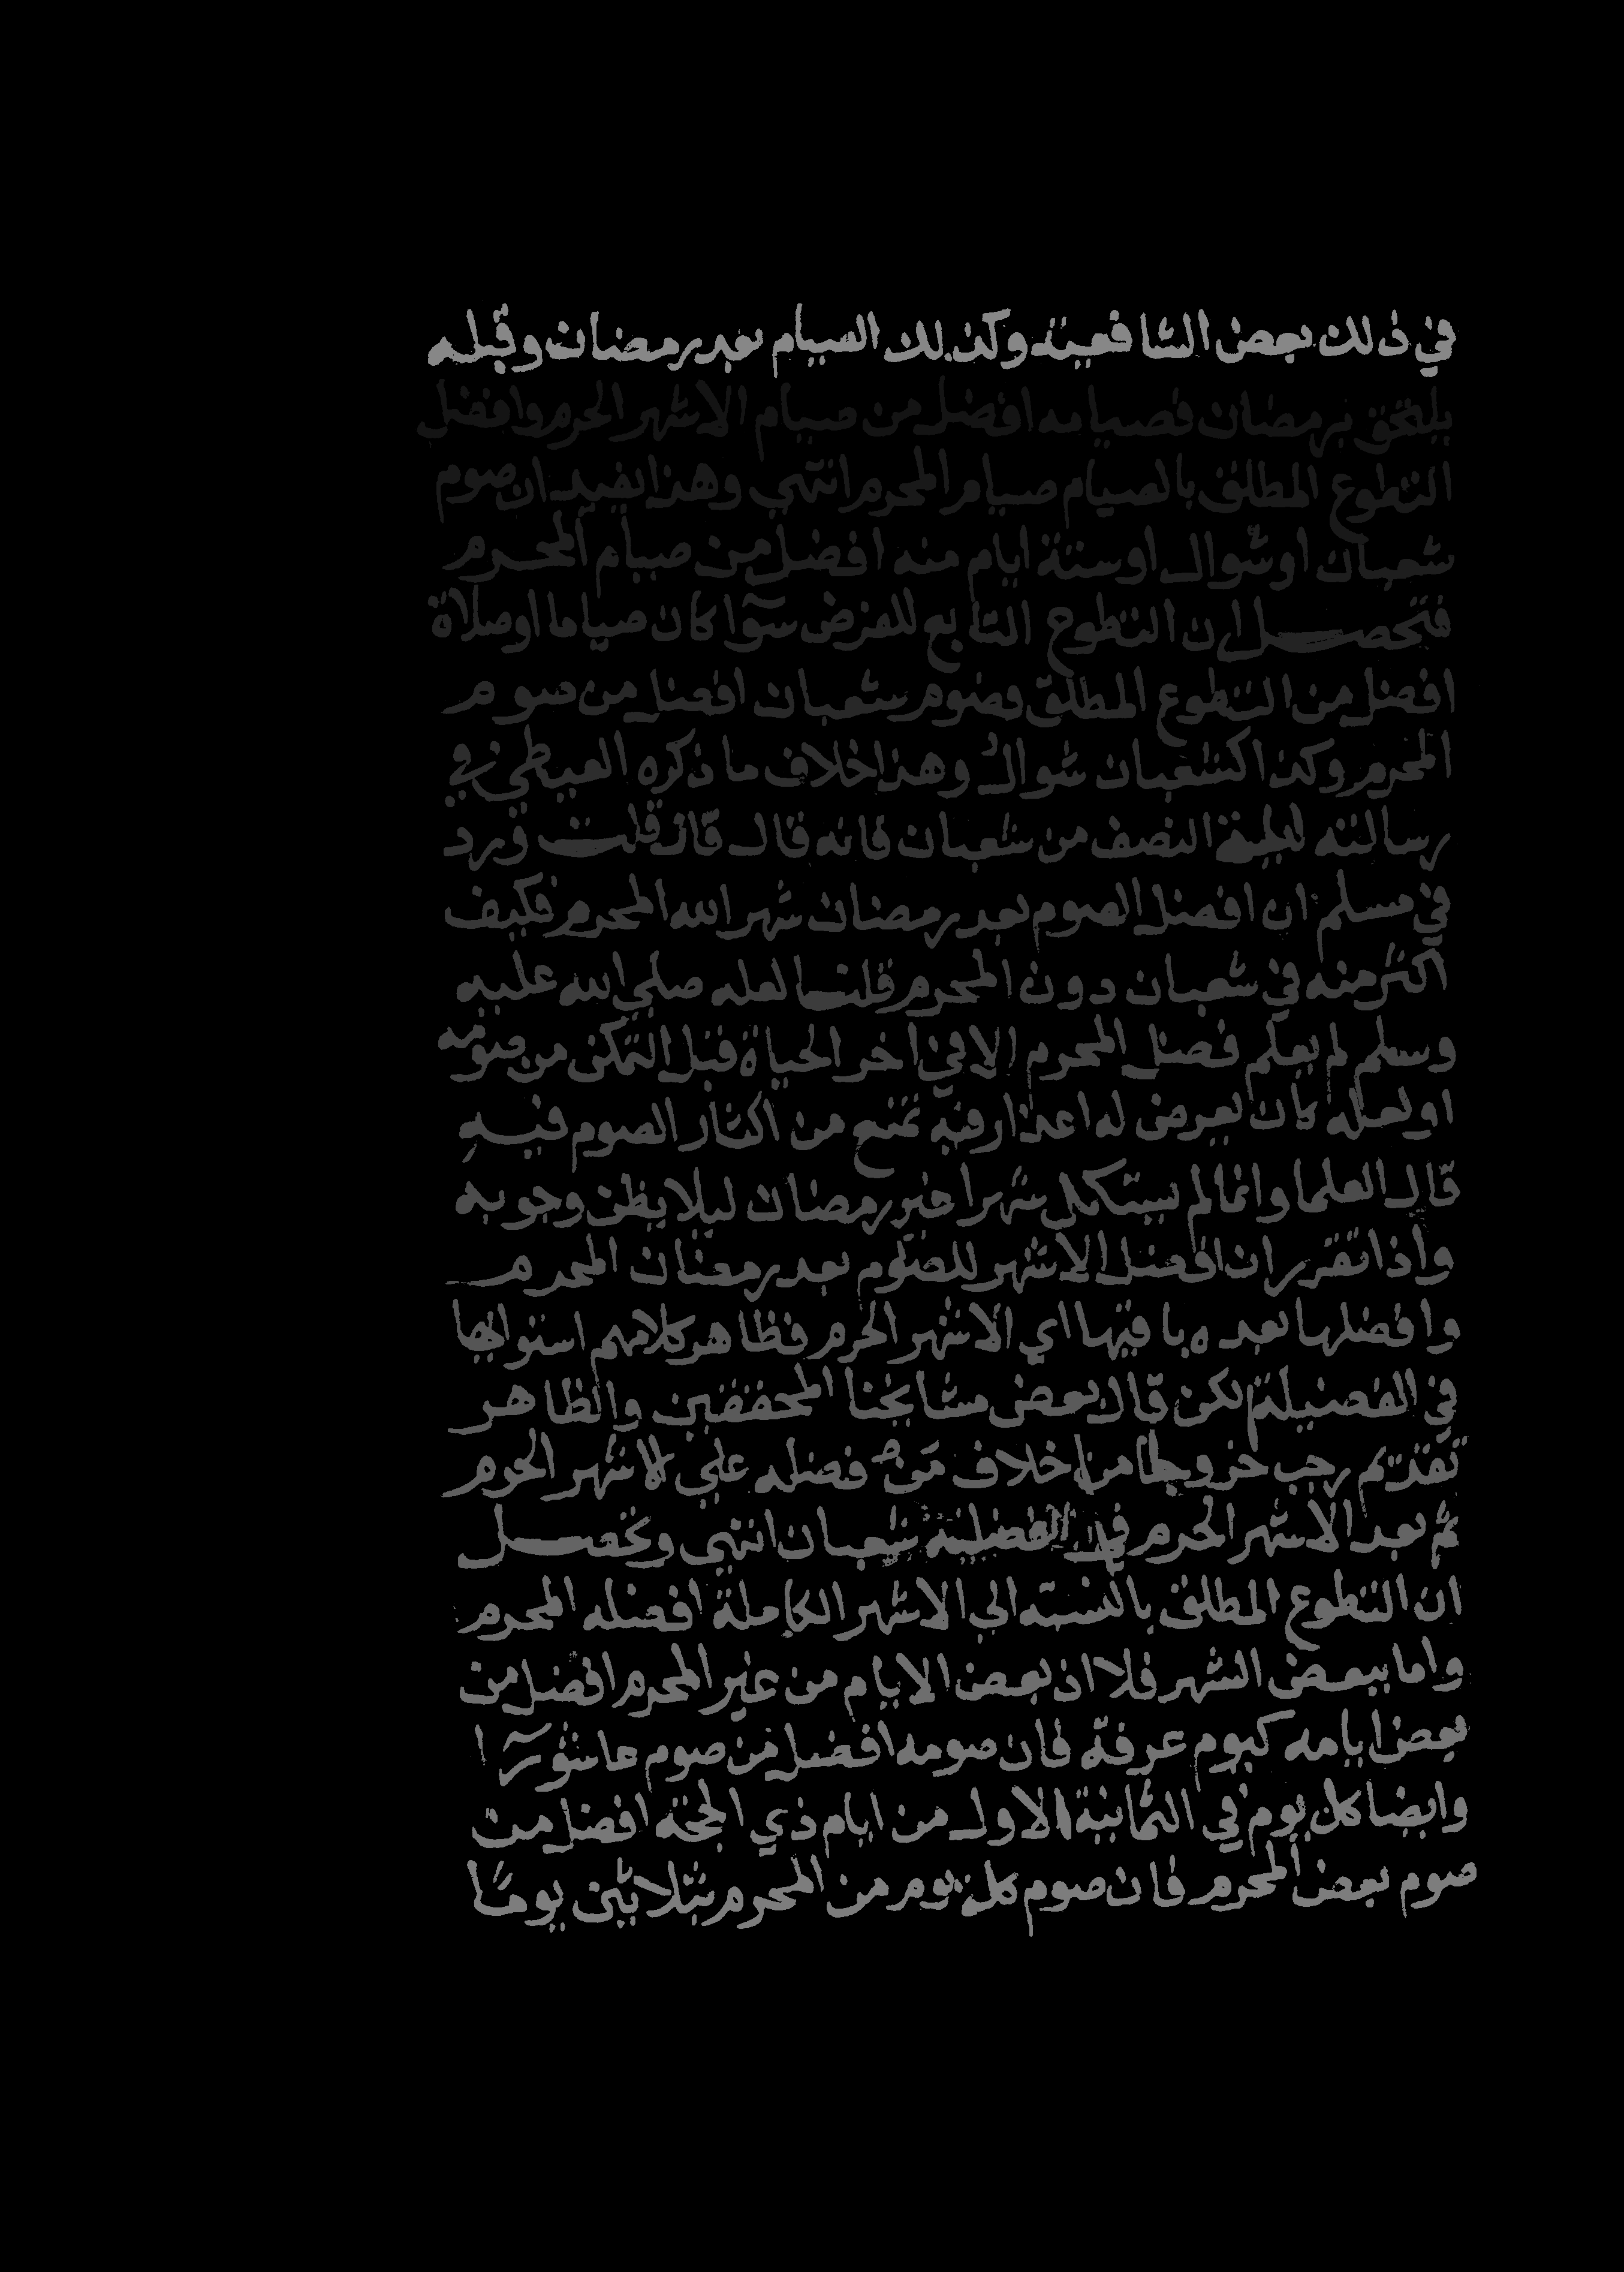 في ذلك بعض الشافعية وكذلك الصيام بعد رمضان وقبله
يلتحق برمضان فصيامه افضل من صيام الاشهر الحرم وافضل
التطوع المطلق بالصيام صيام المحرم انتهي وهذا يفيد ان صوم
شعبان او شوال او ستة ايام منه افضل من صيام المحرم
فتحصل ان التطوع التابع للفرض سوآ كان صياما او صلاة
افضل من التطوع المطلق وصوم شعبان افضل من صوم
المحرم وكذا كشعبان شوال وهذا خلاف ما ذكره الغيطي في
رسالته لليلة النصف من شعبان فانه قال فان قلت ورد
في مسلم ان افضل الصوم بعد رمضان شهر الله المحرم فكيف
اكثر منه في شعبان دون المحرم قلت لعله صلي الله عليه
وسلم لم يعلم فضل المحرم الا في اخر الحياة قبل التمكن من صومه
او لعله كان يعرض له اعذار فيه تمنع من اكثار الصوم فيه
قال العلما وانما لم يستكمل شهرا غير رمضان ليلا يظن وجوبه
واذا تقرر ان افضل الاشهر للصوم بعد رمضان المحرم
وافضلها بعده باقيها اي الاشهر الحرم فظاهر كلامهم استوايها
في الفضيلة لكن قال بعض مشايخنا المحققين والظاهر
تقديم رجب خروجا من خلاف من فضله علي الاشهر الحرم
ثم بعد الاشهر الحرم في الفضيلة شعبان انتهي وتحصل
ان التطوع المطلق بالنسبة الي الاشهر الكاملة افضله المحرم
واما ببعض الشهر فلا اذ بعض الايام من غير المحرم افضل من
بعض ايامه كيوم عرفة فان صومه افضل من صوم عاشورآ
وايضا كل يوم في الثمانية الاول من ايام ذي الحجة افضل من
صوم بعض المحرم فان صوم كل يوم من المحرم بثلاثين يوما